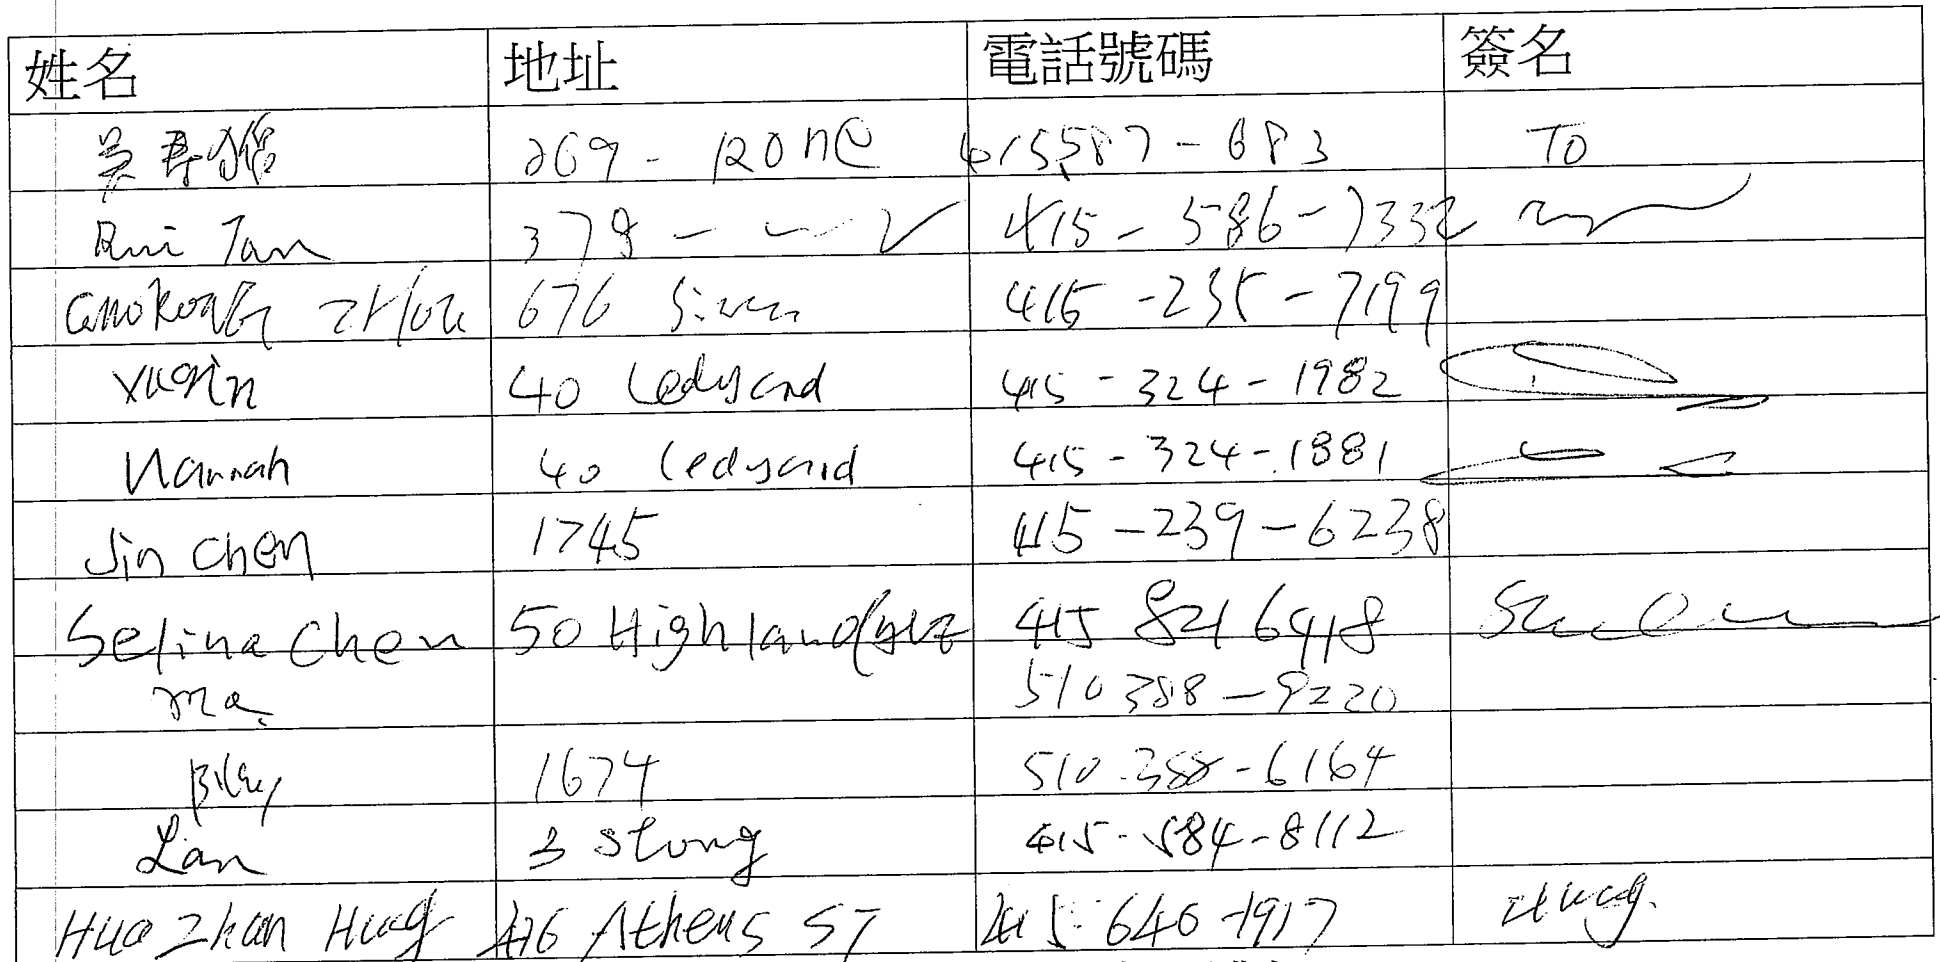 姓名 地址 電話號碼 簽名
吳 269 - 415587-683 To
Rui Tan 379 415-586-7332
676 415-235-7199
40 Ledyard 415-324-1982
Hannah 40 Ledyard 415-324-1881
Jin Chen 1745 415-239-6238
Selina Chen 50 Highland 415 821 6418
Ma 510 388-9220
1674 510-388-6164
Lan 3 Stong 415-584-8112
Hua Zhan Huag 416 Athens ST 415-640-1917